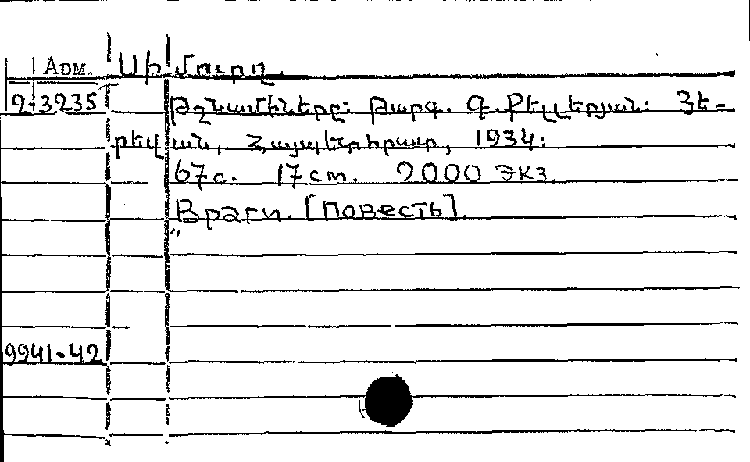 Арм. Սիմուրղ.
2-3235 Թշնամիները: Թարգ. Գ. Քելլերյան: Յե-
րեվան, Հայպետհրատ, 1934:
67с. 17cm. 2000 экз.
Враги. [Повесть].
9941-42